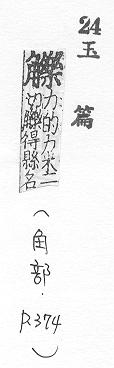 24
玉篇
觻
力的力木二
切觻得縣名
（角部．P.374）